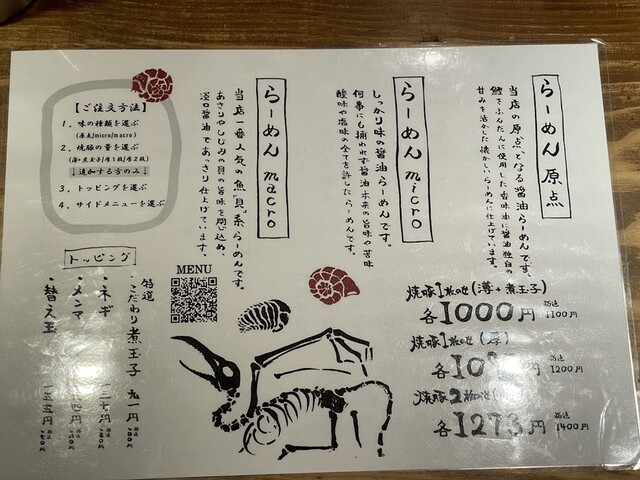 らーめん 原点
当店の原点となる醤油らーめんです。
鰹をふんだんに使用した香味油に醤油独自の
甘みを活かした懐かしいらーめんに仕上げています。
らーめん micro
しっかり味の醤油らーめんです。
何事にも捕われず醤油本来の旨味や苦味
酸味や塩味の全てを許したらーめんです。
らーめん macro
当店一番人気の魚"貝"系らーめんです。
あさりやしじみの貝の旨味を閉じ込め、
淡口醤油であっさり仕上げています。
【ご注文方法】
1、味の種類を選ぶ
(原点/micro/macro)
2、焼豚の量を選ぶ
(薄+煮玉子/厚1枚/厚2枚)
↓追加する方のみ↓
3、トッピングを選ぶ
4、サイドメニューを選ぶ
トッピング
特選
・こだわり煮玉子 九一円 税込100円
・ネギ 円 税込
・メンマ 円 税込
・替え玉 一五五円 税込
MENU
焼豚1枚のせ(薄+煮玉子)
各1000円 税込1100円
焼豚1枚のせ(厚)
各10 円 税込1200円
焼豚2枚のせ
各1273円 税込1400円